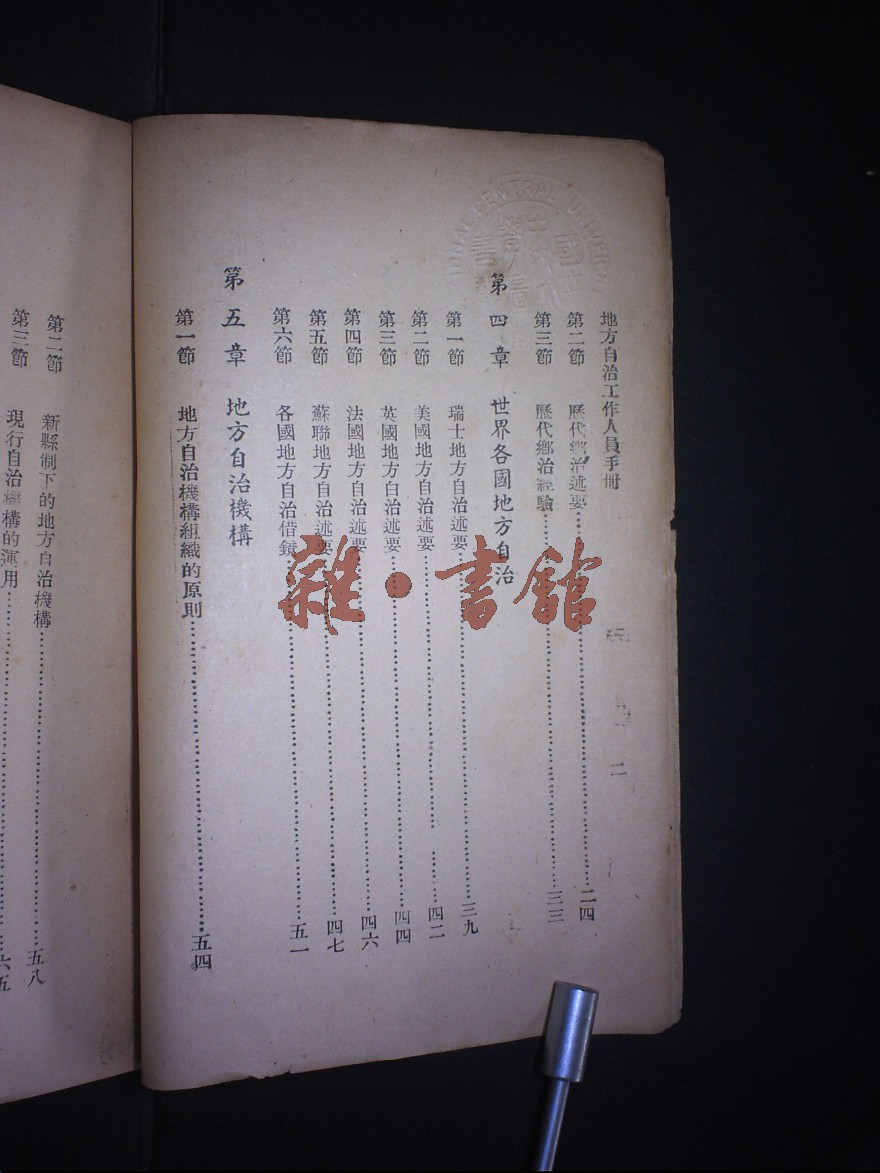 地方自治工作人員手冊
二
第二節 歷代鄉治述要……二四
第三節 歷代鄉治經驗……三三
第四章 世界各國地方自治
第一節 瑞士地方自治述要……三九
第二節 美國地方自治述要……四二
第三節 英國地方自治述要……四四
第四節 法國地方自治述要……四六
第五節 蘇聯地方自治述要……四七
第六節 各國地方自治借鏡……五一
第五章 地方自治機構
第一節 地方自治機構組織的原則……五四
第二節 新縣制下的地方自治機構……五八
第三節 現行自治機構的運用……六五
雜·書館
CENTRAL UNIVERSITY